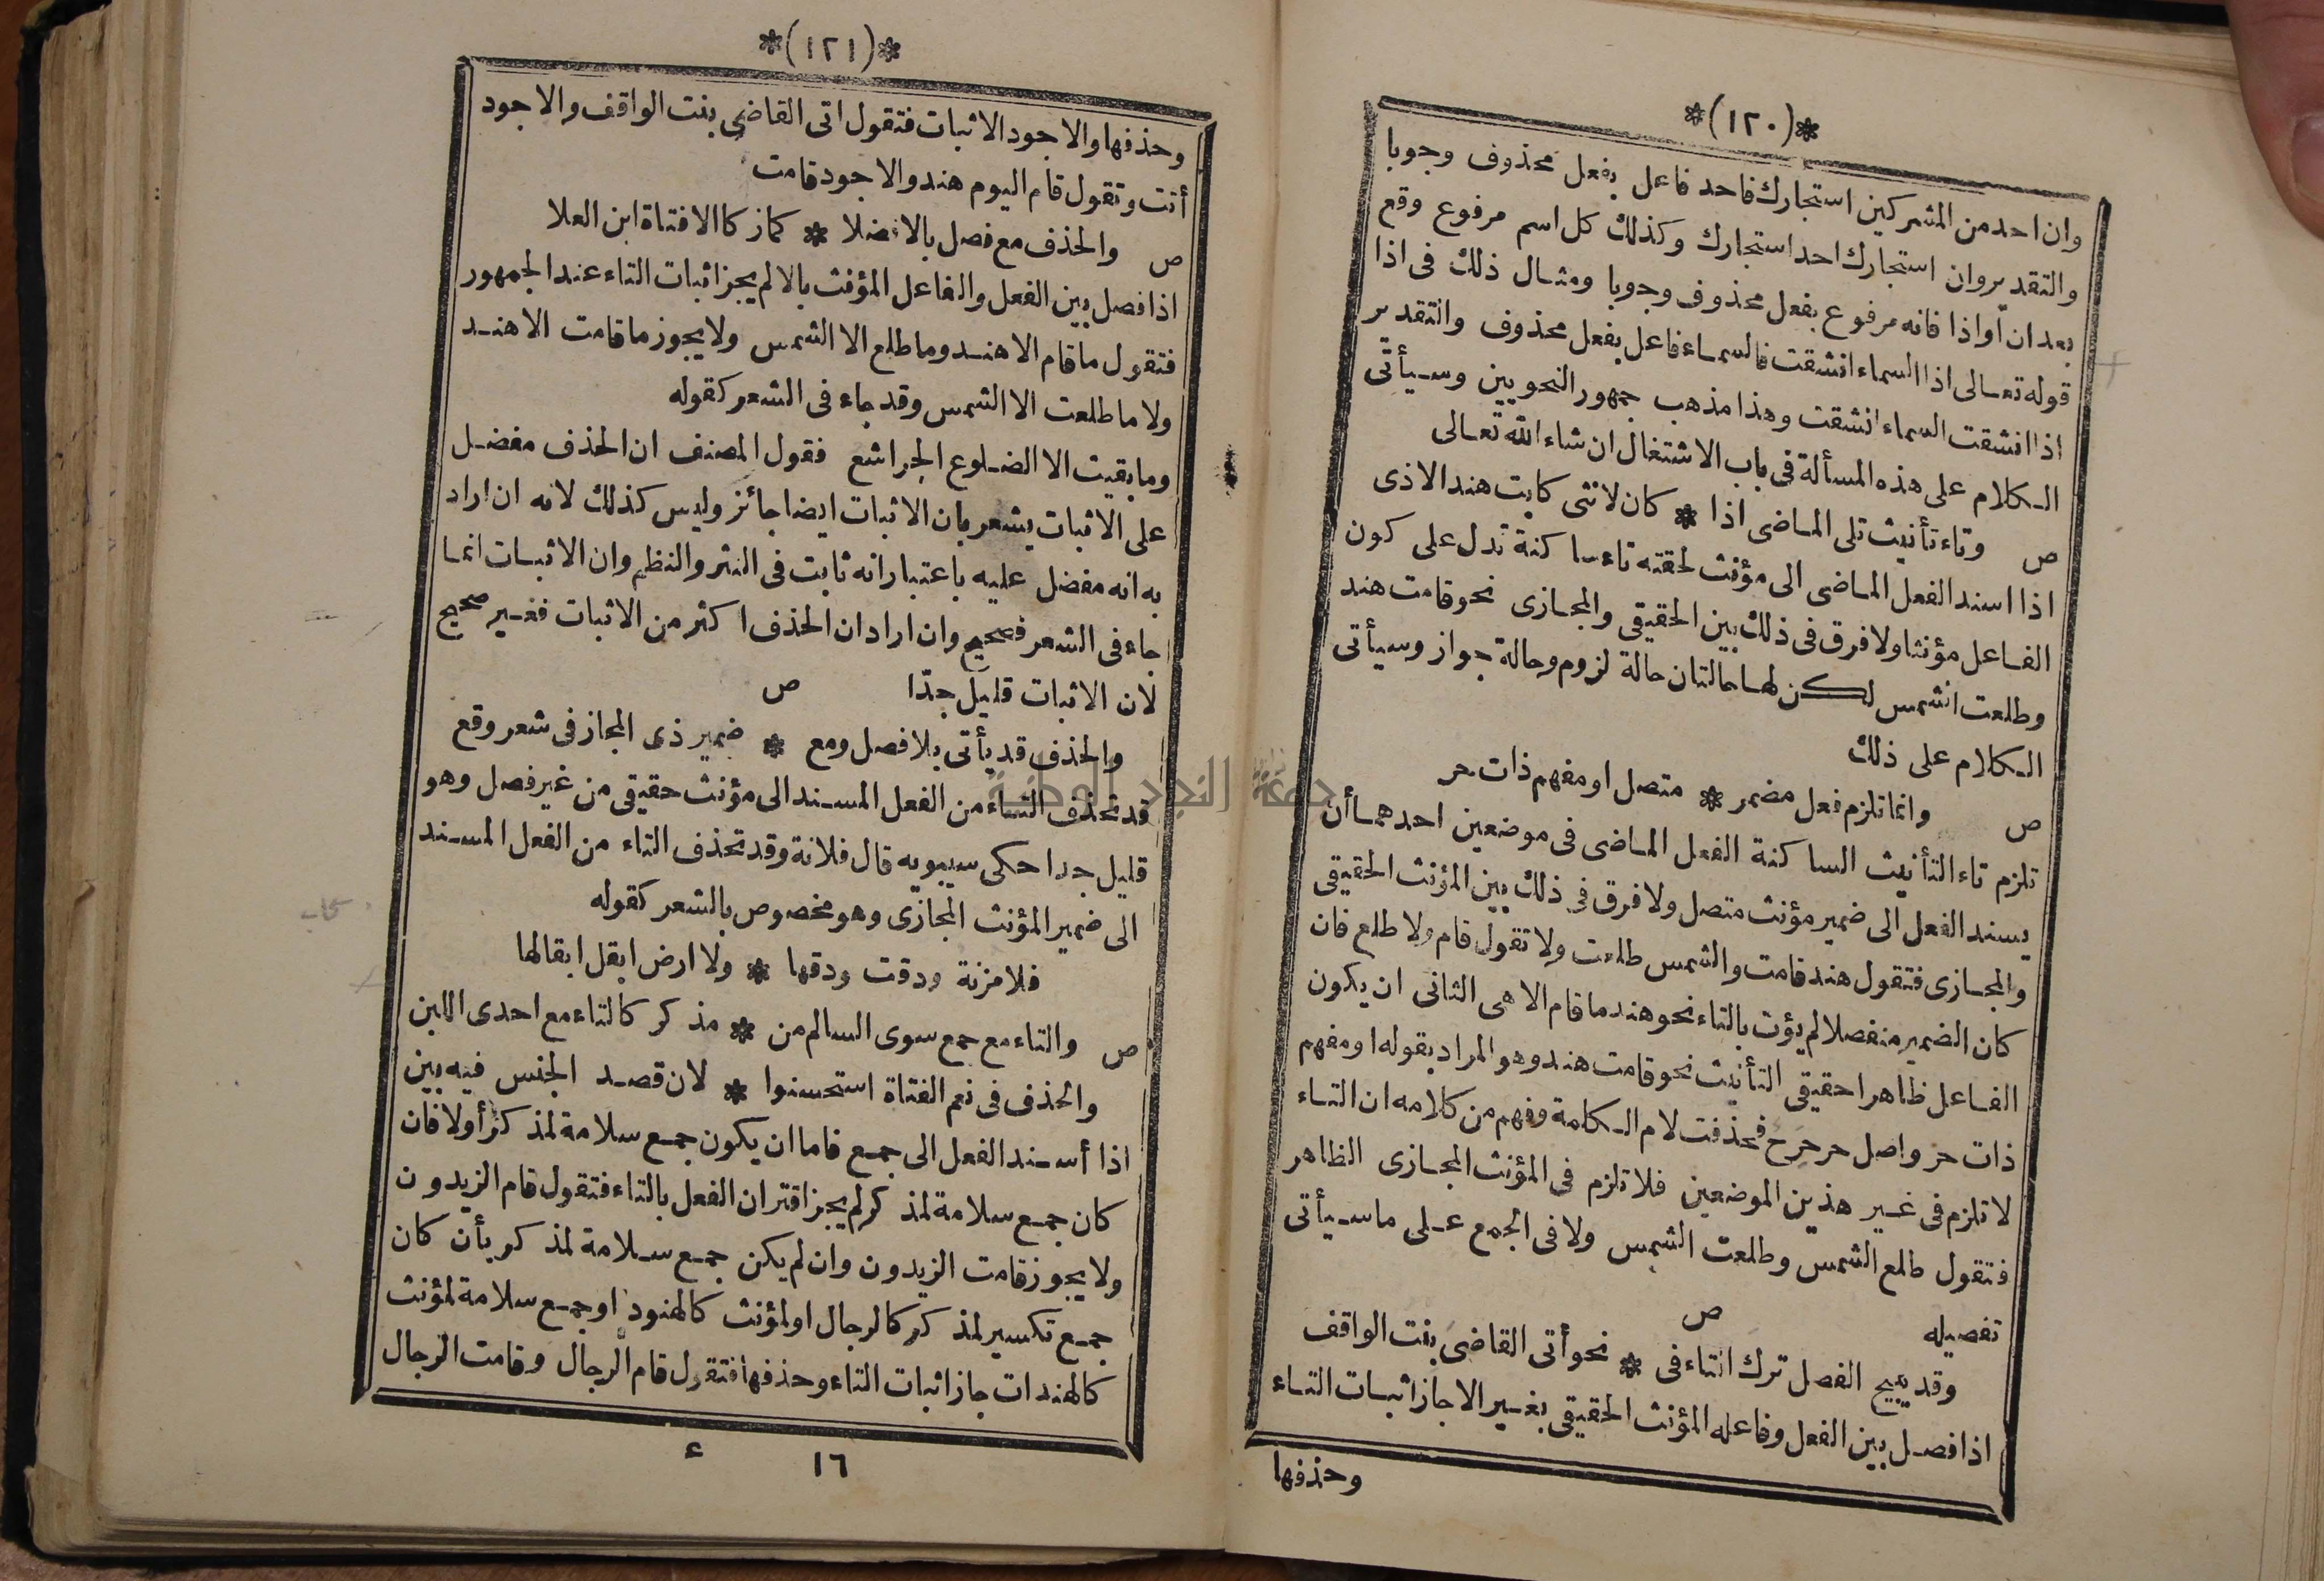 *(١٢٠)*
وان احد من المشركين استجارك فاحد فاعل بفعل محذوف وجوبا
والتقدير وان استجارك احد استجارك وكذلك كل اسم مرفوع وقع
بعد ان أو اذا فانه مرفوع بفعل محذوف وجوبا ومثال ذلك فى اذا
قوله تعالى اذا السماء انشقت فالسماء فاعل بفعل محذوف والتقدير
اذا انشقت السماء انشقت وهذا مذهب جمهور النحويين وسيأتى
الكلام على هذه المسألة فى باب الاشتغال ان شاء الله تعالى
ص وتاء تأنيث تلى الماضى اذا * كان لانثى كابت هند الاذى
اذا اسند الفعل الماضى الى مؤنث لحقته تاء ساكنة تدل على كون
الفاعل مؤنثا ولا فرق فى ذلك بين الحقيقى والمجازى نحو قامت هند
وطلعت الشمس لكن لها حالتان حالة لزوم وحالة جواز وسيأتى
الكلام على ذلك
ص وانما تلزم فعل مضمر * متصل او مفهم ذات حر
تلزم تاء التأنيث الساكنة الفعل الماضى فى موضعين احدهما أن
يسند الفعل الى ضمير مؤنث متصل ولا فرق فى ذلك بين المؤنث الحقيقى
والمجازى فتقول هند قامت والشمس طلعت ولا تقول قام ولا طلع فان
كان الضمير منفصلا لم يؤت بالتاء نحو هند ما قام الا هى الثانى ان يكون
الفاعل ظاهرا حقيقى التأنيث نحو قامت هند وهو المراد بقوله او مفهم
ذات حر واصل حر حرح فحذفت لام الكلمة وفهم من كلامه ان التاء
لا تلزم فى غير هذين الموضعين فلا تلزم فى المؤنث المجازى الظاهر
فتقول طلع الشمس وطلعت الشمس ولا فى الجمع على ما سيأتى
تفصيله ص
وقد يبيح الفصل ترك التاء فى * نحو أتى القاضى بنت الواقف
اذا فصل بين الفعل وفاعله المؤنث الحقيقى بغير الا جاز اثبات التاء
وحذفها
*(١٢١)*
وحذفها والاجود الاثبات فتقول اتى القاضى بنت الواقف والاجود
أتت وتقول قام اليوم هند والاجود قامت
ص والحذف مع فصل بالا فضلا * كما زكا الا فتاة ابن العلا
اذا فصل بين الفعل والفاعل المؤنث بالا لم يجز اثبات التاء عند الجمهور
فتقول ما قام الا هند وما طلع الا الشمس ولا يجوز ما قامت الا هند
ولا ما طلعت الا الشمس وقد جاء فى الشعر كقوله
وما بقيت الا الضلوع الجراشع فقول المصنف ان الحذف مفضل
على الاثبات يشعر بان الاثبات ايضا جائز وليس كذلك لانه ان اراد
به انه مفضل عليه باعتبار انه ثابت فى النثر والنظم وان الاثبات انما
جاء فى الشعر فصحيح وان اراد ان الحذف اكثر من الاثبات فغير صحيح
لان الاثبات قليل جدّا ص
والحذف قد يأتى بلا فصل ومع * ضمير ذى المجاز فى شعر وقع
قد تحذف التاء من الفعل المسند الى مؤنث حقيقى من غير فصل وهو
قليل جدا حكى سيبويه قال فلانة وقد تحذف التاء من الفعل المسند
الى ضمير المؤنث المجازى وهو مخصوص بالشعر كقوله
فلا مزنة ودقت ودقها * ولا ارض ابقل ابقالها
ص والتاء مع جمع سوى السالم من * مذكر كالتاء مع احدى اللبن
والحذف فى نعم الفتاة استحسنوا * لان قصد الجنس فيه بين
اذا أسند الفعل الى جمع فاما ان يكون جمع سلامة لمذكر أولا فان
كان جمع سلامة لمذكر لم يجز اقتران الفعل بالتاء فتقول قام الزيدون
ولا يجوز قامت الزيدون وان لم يكن جمع سلامة لمذكر بأن كان
جمع تكسير لمذكر كالرجال او لمؤنث كالهنود او جمع سلامة لمؤنث
كالهندات جاز اثبات التاء وحذفها فتقول قام الرجال وقامت الرجال
١٦ ع